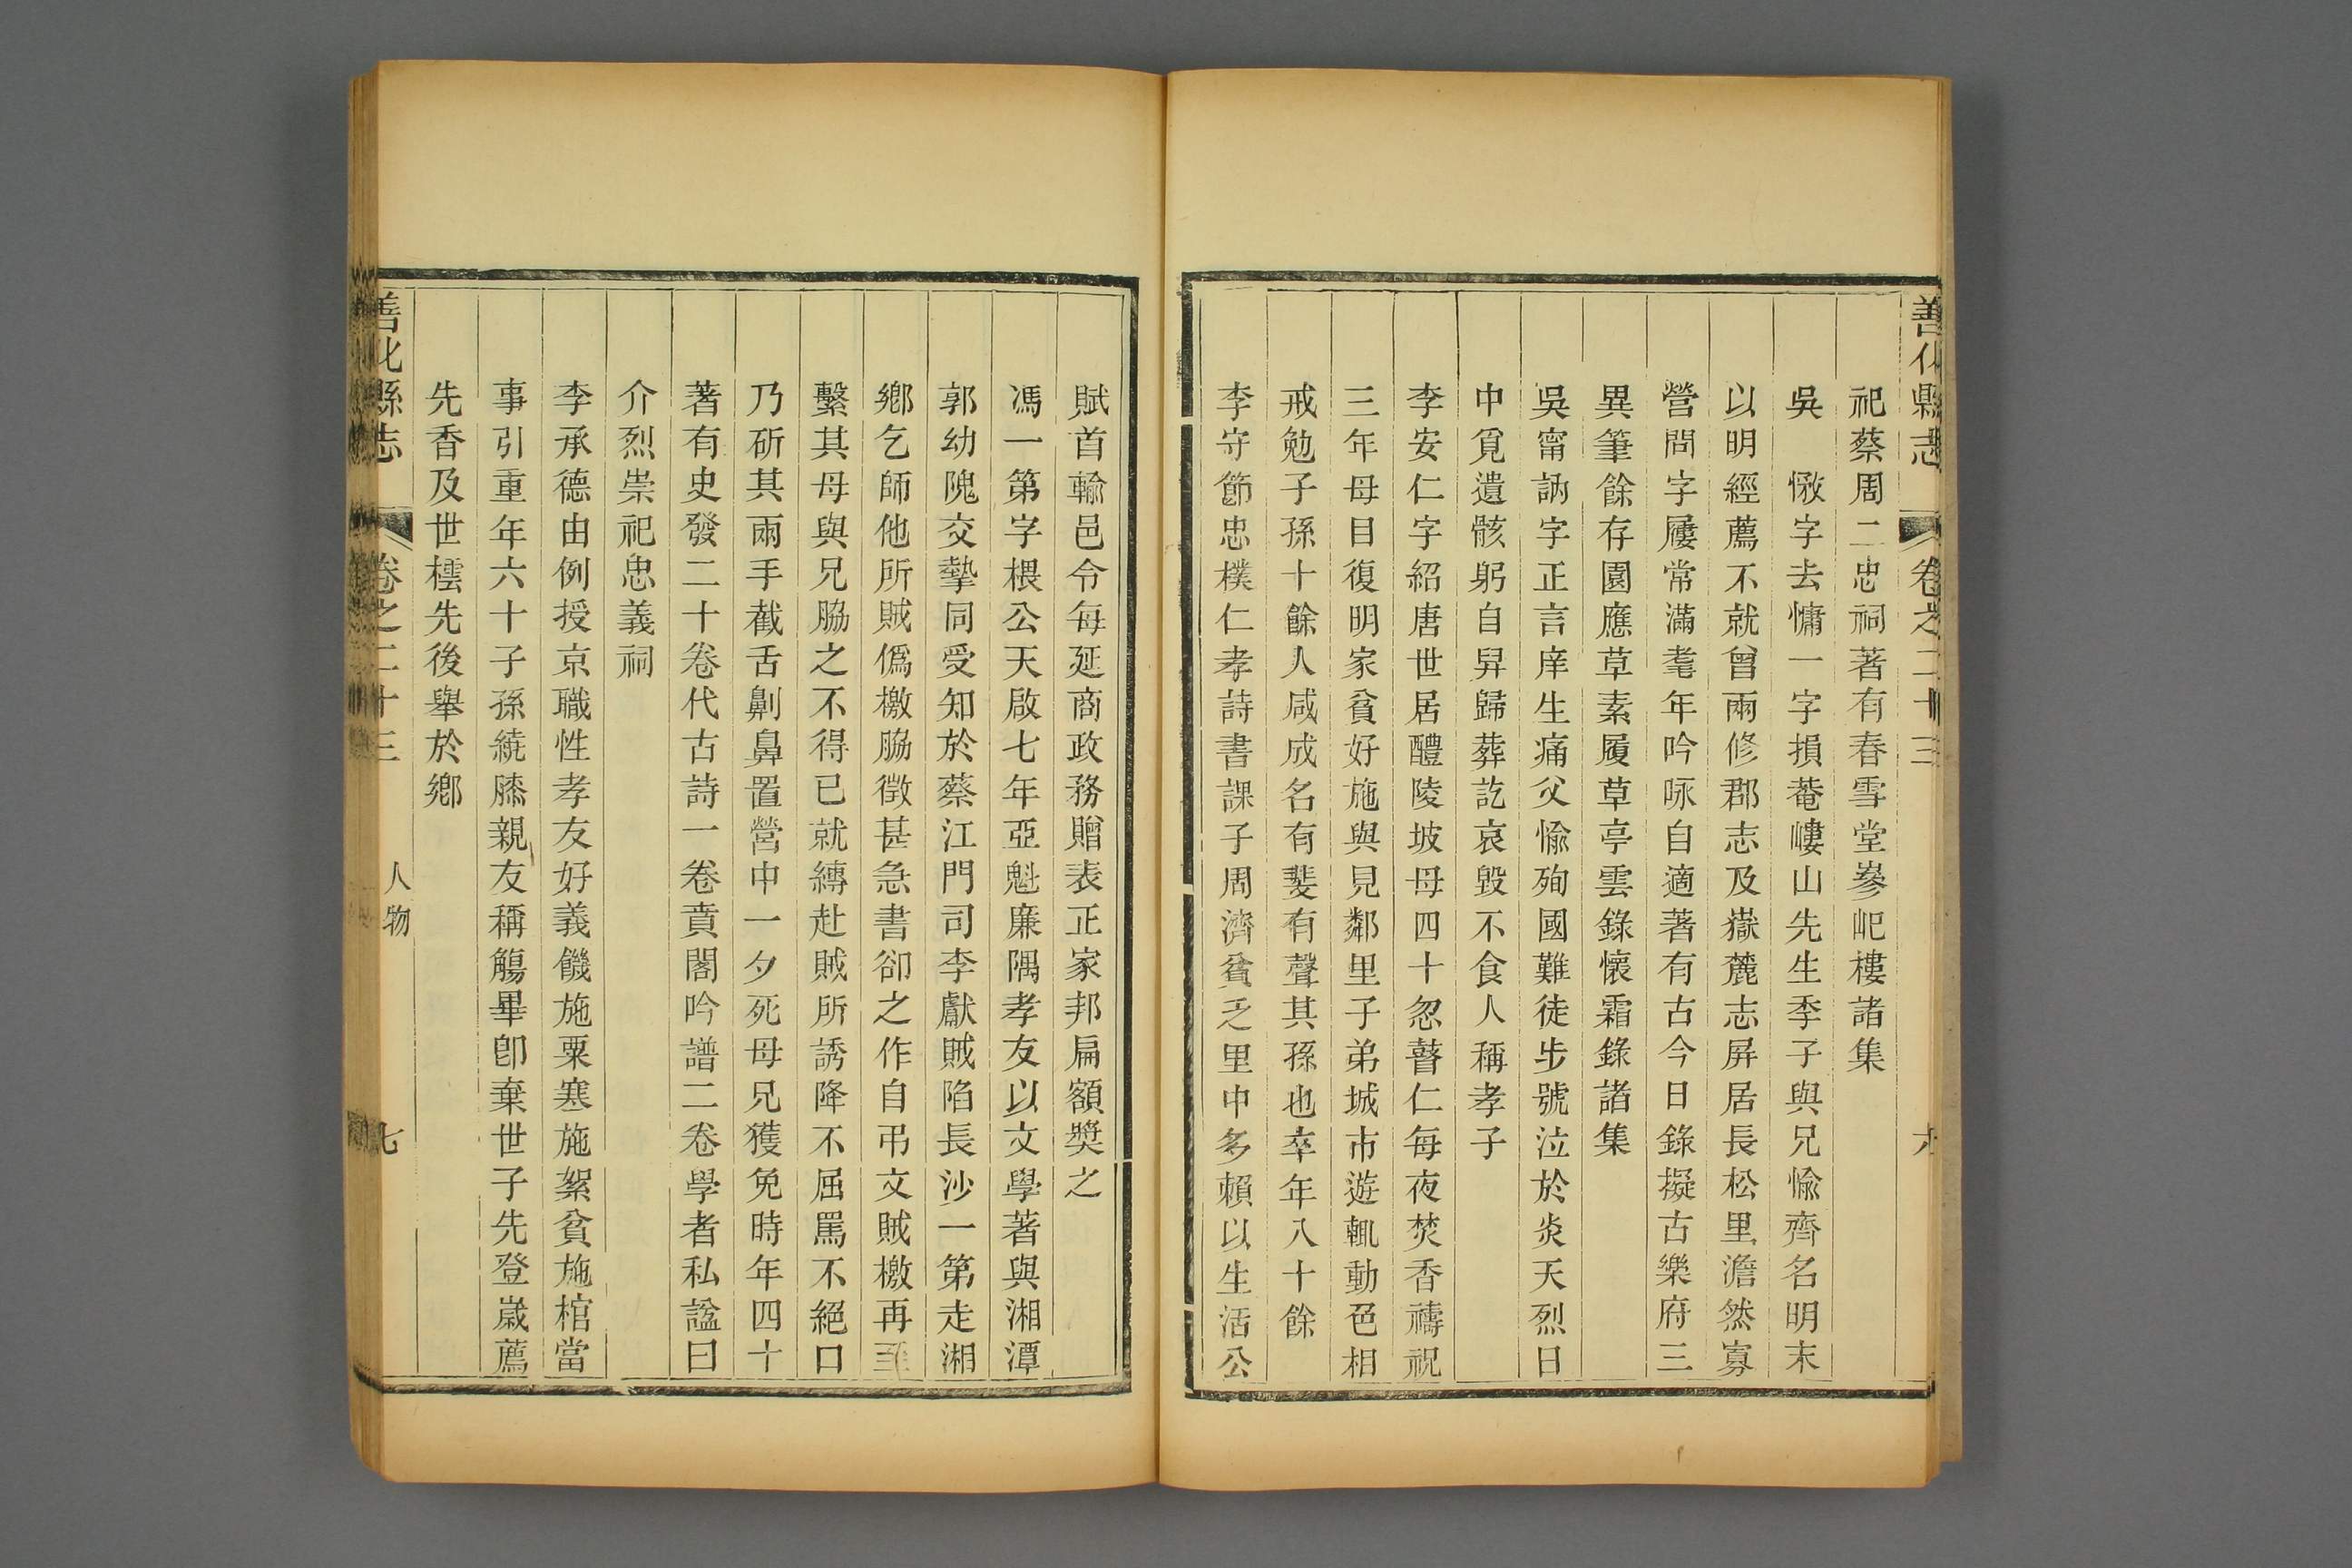 善化縣志 卷之二十三 六
祀蔡周二忠祠著有春雪堂嵾岊樓諸集
吳 儆字去慵一字損菴嶁山先生季子與兄愉齊名明末
以明經薦不就曾兩修郡志及嶽麓志屏居長松里澹然寡
營問字屨常滿耄年吟咏自適著有古今日錄擬古樂府三
異筆餘存園應草素履草亭雲錄懷霜錄諸集
吳甯訥字正言庠生痛父愉殉國難徒步號泣於炎天烈日
中覓遺骸躬自舁歸葬訖哀毀不食人稱孝子
李安仁字紹唐世居醴陵坡母四十忽瞽仁每夜焚香禱祝
三年母目復明家貧好施與見鄰里子弟城市遊輒動色相
戒勉子孫十餘人咸成名有斐有聲其孫也卒年八十餘
李守節忠樸仁孝詩書課子周濟貧乏里中多賴以生活公
賦首輸邑令每延商政務贈表正家邦扁額奬之
馮一第字楒公天啟七年亞魁廉隅孝友以文學著與湘潭
郭幼隗交摯同受知於蔡江門司李獻賊陷長沙一第走湘
鄉乞師他所賊僞檄脇徵甚急書卻之作自弔文賊檄再至
繫其母與兄脇之不得已就縛赴賊所誘降不屈罵不絕口
乃斫其兩手截舌劓鼻置營中一夕死母兄獲免時年四十
著有史發二十卷代古詩一卷賁閣吟譜二卷學者私諡曰
介烈崇祀忠義祠
李承德由例授京職性孝友好義饑施粟寒施絮貧施棺當
事引重年六十子孫繞膝親友稱觴畢卽棄世子先登歲薦
先香及世橒先後舉於鄉
善化縣志 卷之二十三 人物 七